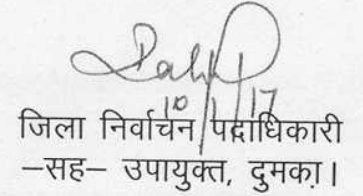 10/1/17
जिला निर्वाचन पदाधिकारी
–सह– उपायुक्त, दुमका।